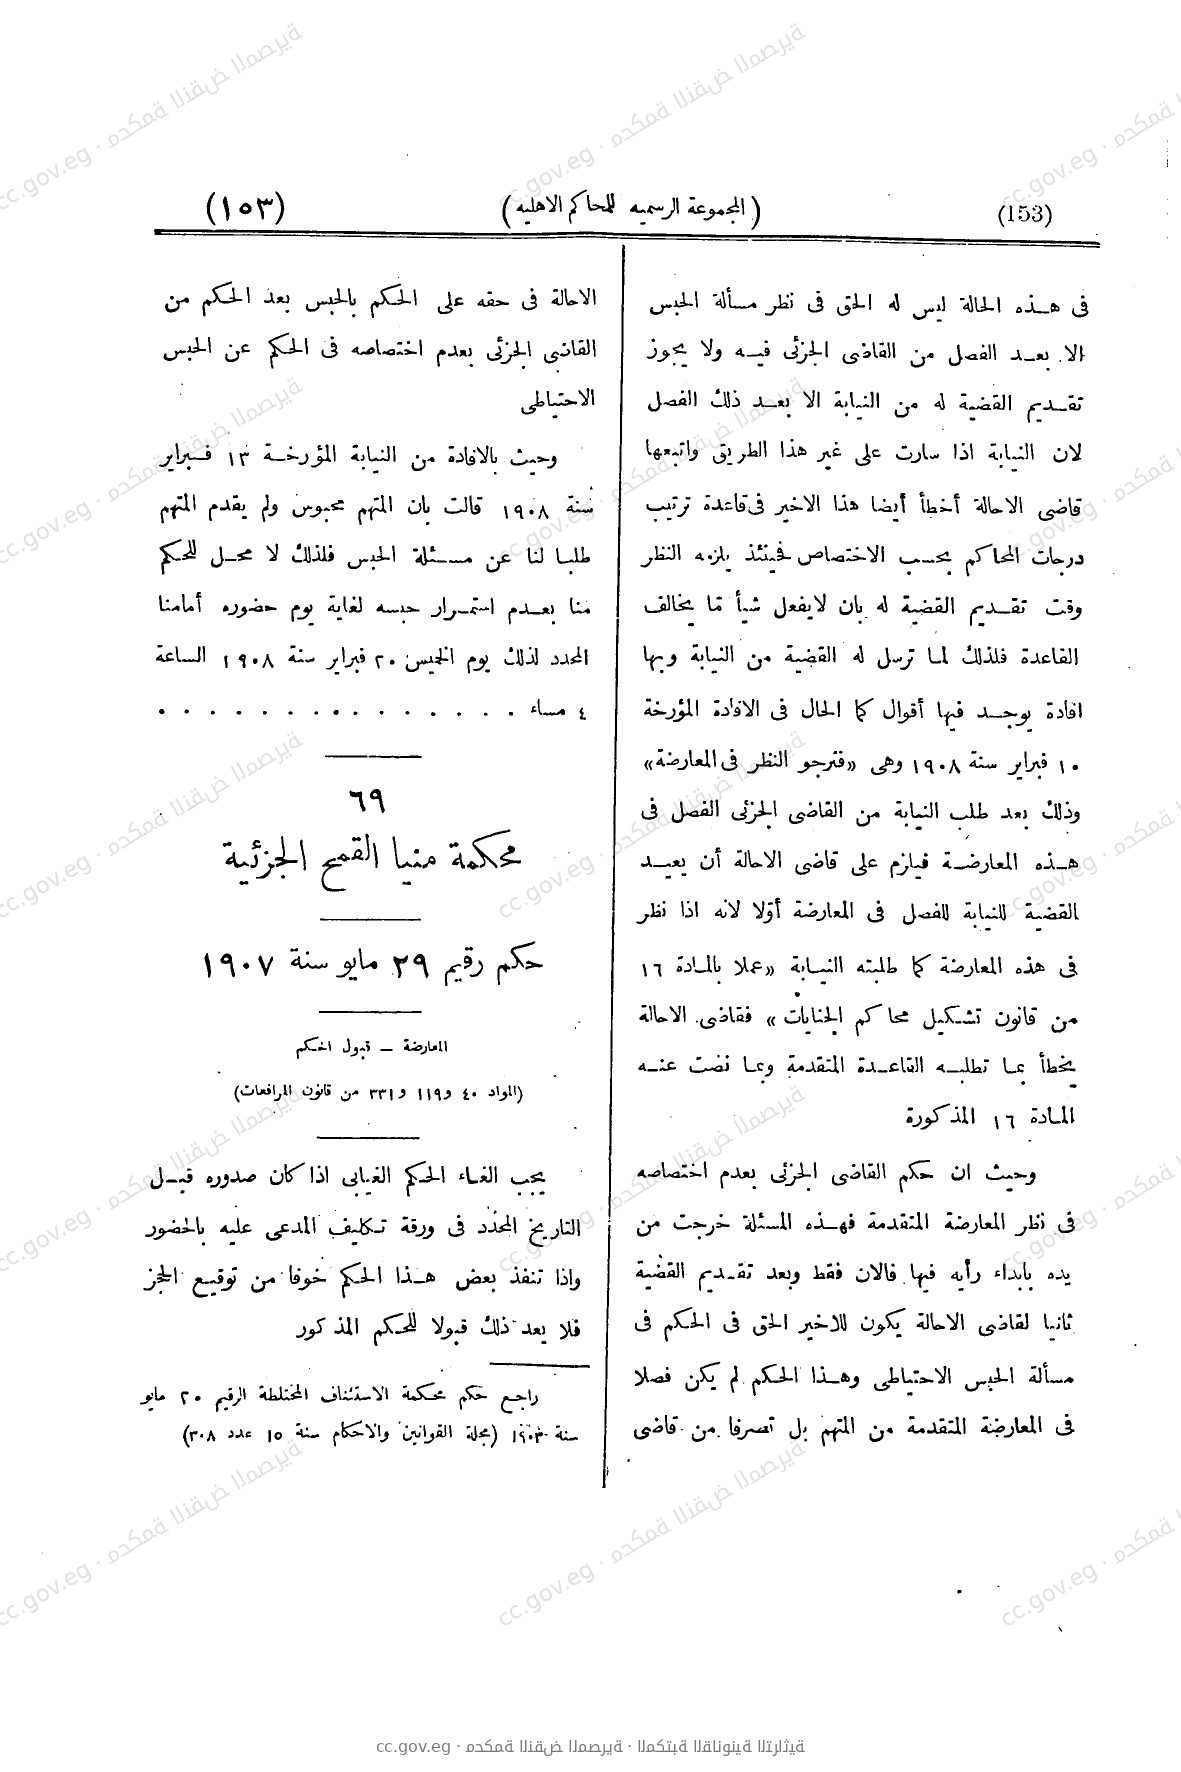 (153)
(المجموعة الرسميه للمحاكم الاهليه)
(١٥٣)
فى هـذه الحالة ليس له الحق فى نظر مسألة الحبس
الا بعـد الفصل من القاضى الجزئى فيـه ولا يجوز
تقـديم القضية له من النيابة الا بعـد ذلك الفصل
لان النيابة اذا سارت على غير هذا الطريق واتبعها
قاضى الاحالة أخطأ أيضا هذا الاخير فى قاعدة ترتيب
درجات المحاكم بحسب الاختصاص فحينئذ يلزمه النظر
وقت تقـديم القضية له بان لا يفعل شيأ مّا يخالف
القاعدة فلذلك لما ترسل له القضية من النيابة وبها
افادة يوجـد فيها أقوال كما الحال فى الافادة المؤرخة
١٠ فبراير سنة ١٩٠٨ وهى «فنرجو النظر فى المعارضة»
وذلك بعد طلب النيابة من القاضى الجزئى الفصل فى
هـذه المعارضـة فيلزم على قاضى الاحالة أن يعيـد
القضية للنيابة للفصل فى المعارضة أوّلا لانه اذا نظر
فى هذه المعارضة كما طلبته النيـابة «عملا بالمـادة ١٦
من قانون تشـكيل محاكم الجنايات» فقاضى الاحالة
يخطأ بمـا تطلبـه القاعـدة المتقدمة وبمـا نصت عنـه
المـادة ١٦ المذكورة
وحيث ان حكم القاضى الجزئى بعدم اختصاصه
فى نظر المعارضة المتقدمة فهـذه المسئلة خرجت من
يده بابداء رأيه فيها فالان فقط وبعد تقـديم القضية
ثانيا لقاضى الاحالة يكون للاخير الحق فى الحكم فى
مسألة الحبس الاحتياطى وهـذا الحكم لم يكن فصلا
فى المعارضة المتقدمة من المتهم بل تصرفا من قاضى
الاحالة فى حقه على الحكم بالحبس بعد الحكم من
القاضى الجزئى بعدم اختصاصه فى الحكم عن الحبس
الاحتياطى
وحيث بالافادة من النيابة المؤرخـة ١٣ فـبراير
سنة ١٩٠٨ قالت بان المتهم محبوس ولم يقدم المتهم
طلبـا لنا عن مسـئلة الحبس فلذلك لا محـل للحكم
منا بعـدم استمـرار حبسه لغاية يوم حضوره أمامنا
المحدد لذلك يوم الخميس ٢٠ فبراير سنة ١٩٠٨ الساعة
٤ مساء . . . . . . . . . . . . . . .
٦٩
محكمة منيا القمح الجزئية
حكم رقيم ٢٩ مايو سنة ١٩٠٧
المعارضة – قبول الحكم
(المواد ٤٠ و١١٩ و٣٣١ من قانون المرافعات)
يجب الغـاء الحكم الغيابى اذا كان صدوره قبـل
التاريخ المحدّد فى ورقة تـكليف المدعى عليه بالحضور
واذا تنفذ بعض هـذا الحكم خوفا من توقيـع الحجز
فلا يعد ذلك قبولا للحكم المذكور
راجع حكم محكمة الاستئناف المختلطة الرقيم ٢٠ مايو
سنة ١٩٠٣ (مجلة القوانين والاحكام سنة ١٥ عدد ٣٠٨)
cc.gov.eg · محكمة النقض المصرية · المكتبة القانونية التراثية